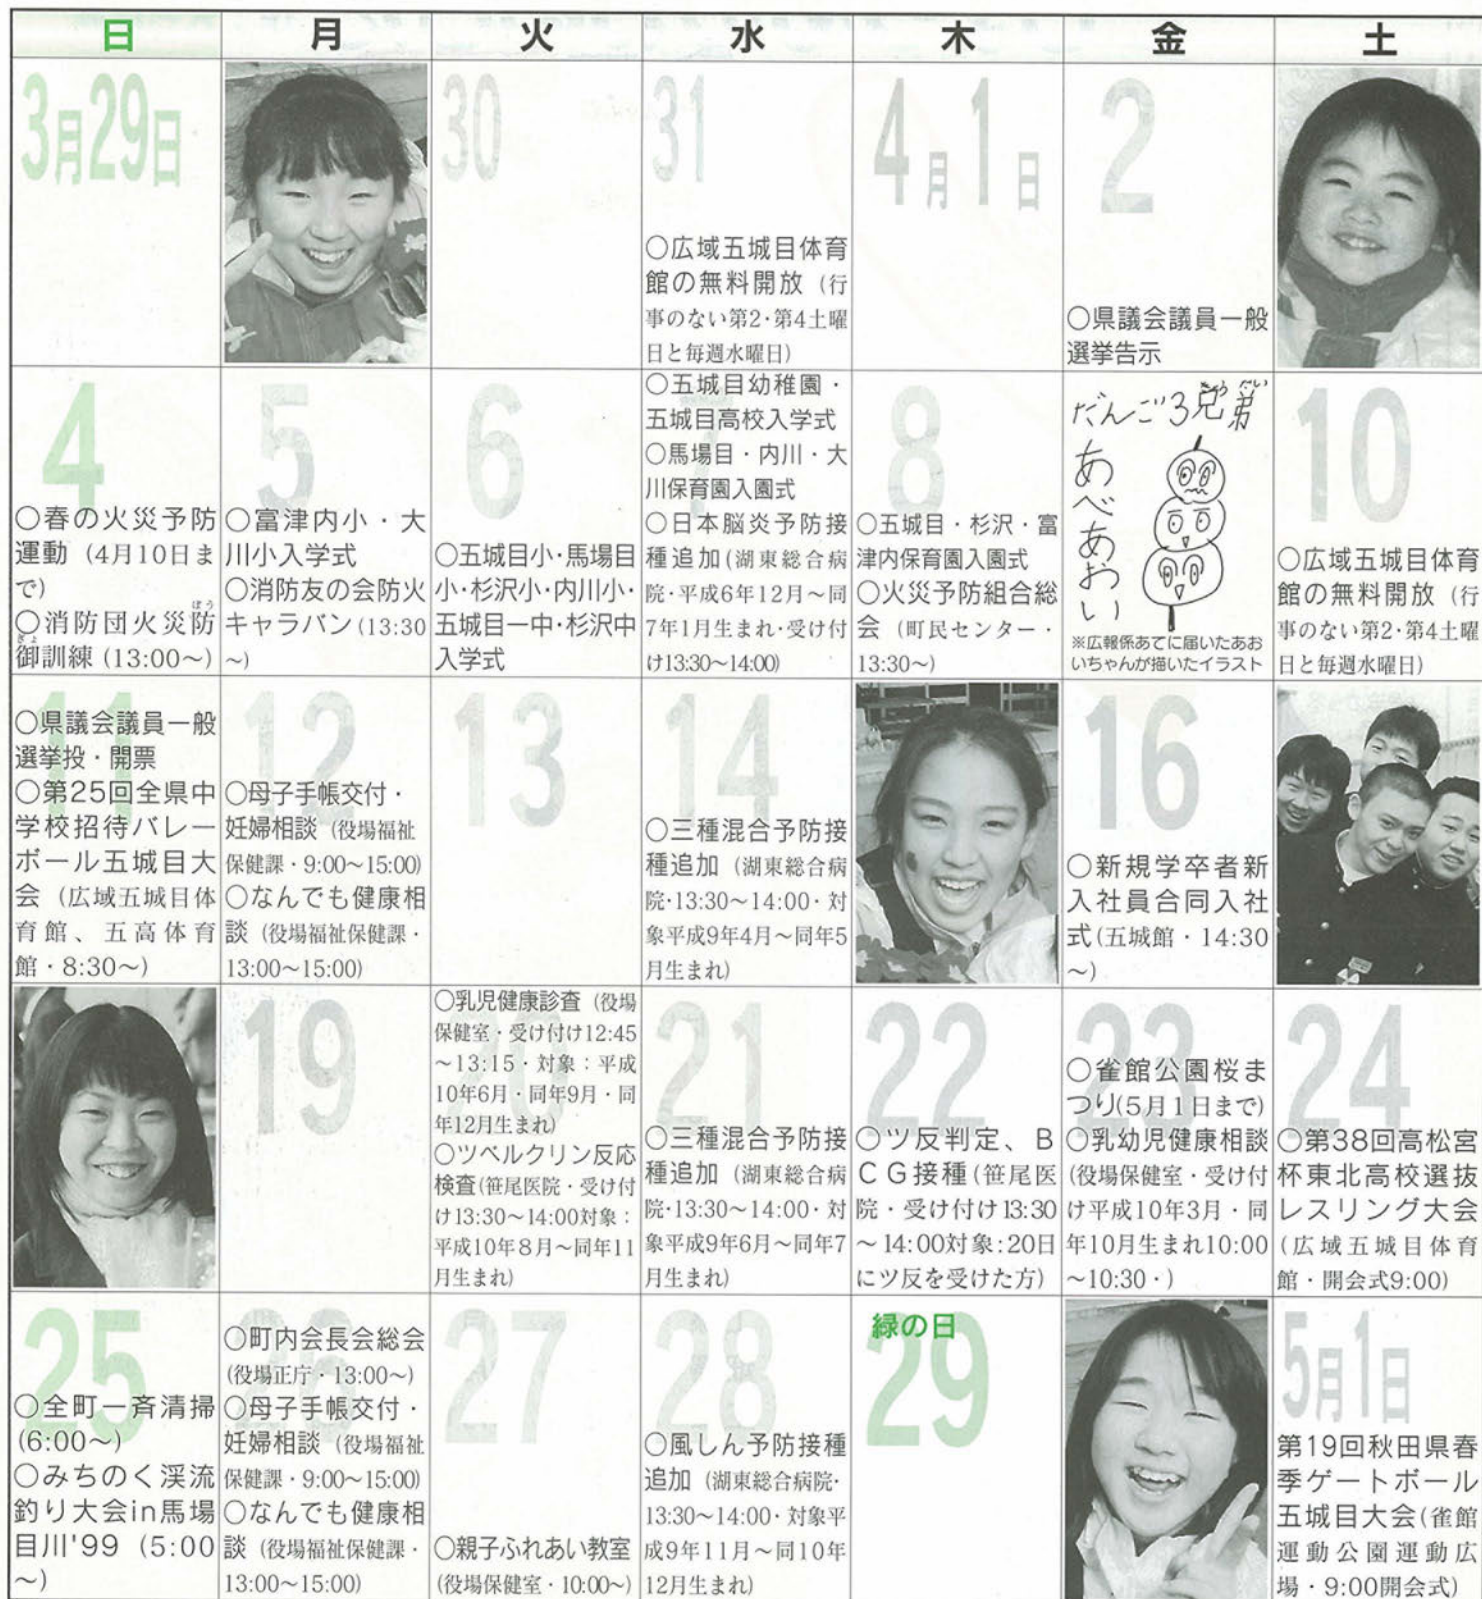 日 月 火 水 木 金 土
3月29日
30
31
○広域五城目体育
館の無料開放（行
事のない第2・第4土曜
日と毎週水曜日）
4月1日
2
○県議会議員一般
選挙告示
4
○春の火災予防
運動（4月10日ま
で）
○消防団火災防
御訓練（13:00～）
ぼう
ぎょ
5
○富津内小・大
川小入学式
○消防友の会防火
キャラバン（13:30
～）
6
○五城目小・馬場目
小・杉沢小・内川小・
五城目一中・杉沢中
入学式
7
○五城目幼稚園・
五城目高校入学式
○馬場目・内川・大
川保育園入園式
○日本脳炎予防接
種追加（湖東総合病
院・平成6年12月～同
7年1月生まれ・受け付
け13:30～14:00）
8
○五城目・杉沢・富
津内保育園入園式
○火災予防組合総
会（町民センター・
13:30～）
だんご3兄弟
きょうだい
あべあおい
※広報係あてに届いたあお
いちゃんが描いたイラスト
10
○広域五城目体育
館の無料開放（行
事のない第2・第4土曜
日と毎週水曜日）
11
○県議会議員一般
選挙投・開票
○第25回全県中
学校招待バレー
ボール五城目大
会（広域五城目体
育館、五高体育
館・8:30～）
12
○母子手帳交付・
妊婦相談（役場福祉
保健課・9:00～15:00）
○なんでも健康相
談（役場福祉保健課・
13:00～15:00）
13
14
○三種混合予防接
種追加（湖東総合病
院・13:30～14:00・対
象平成9年4月～同年5
月生まれ）
16
○新規学卒者新
入社員合同入社
式（五城館・14:30
～）
19
20
○乳児健康診査（役場
保健室・受け付け12:45
～13:15・対象：平成
10年6月・同年9月・同
年12月生まれ）
○ツベルクリン反応
検査（笹尾医院・受け付
け13:30～14:00対象：
平成10年8月～同年11
月生まれ）
21
○三種混合予防接
種追加（湖東総合病
院・13:30～14:00・対
象平成9年6月～同年7
月生まれ）
22
○ツ反判定、B
CG接種（笹尾医
院・受け付け13:30
～14:00対象:20日
にツ反を受けた方）
23
○雀館公園桜ま
つり（5月1日まで）
○乳幼児健康相談
（役場保健室・受け付
け平成10年3月・同
年10月生まれ10:00
～10:30・）
24
○第38回高松宮
杯東北高校選抜
レスリング大会
（広域五城目体育
館・開会式9:00）
25
○全町一斉清掃
（6:00～）
○みちのく渓流
釣り大会in馬場
目川'99（5:00
～）
26
○町内会長会総会
（役場正庁・13:00～）
○母子手帳交付・
妊婦相談（役場福祉
保健課・9:00～15:00）
○なんでも健康相
談（役場福祉保健課・
13:00～15:00）
27
○親子ふれあい教室
（役場保健室・10:00～）
28
○風しん予防接種
追加（湖東総合病院・
13:30～14:00・対象平
成9年11月～同10年
12月生まれ）
緑の日
29
5月1日
第19回秋田県春
季ゲートボール
五城目大会（雀館
運動公園運動広
場・9:00開会式）